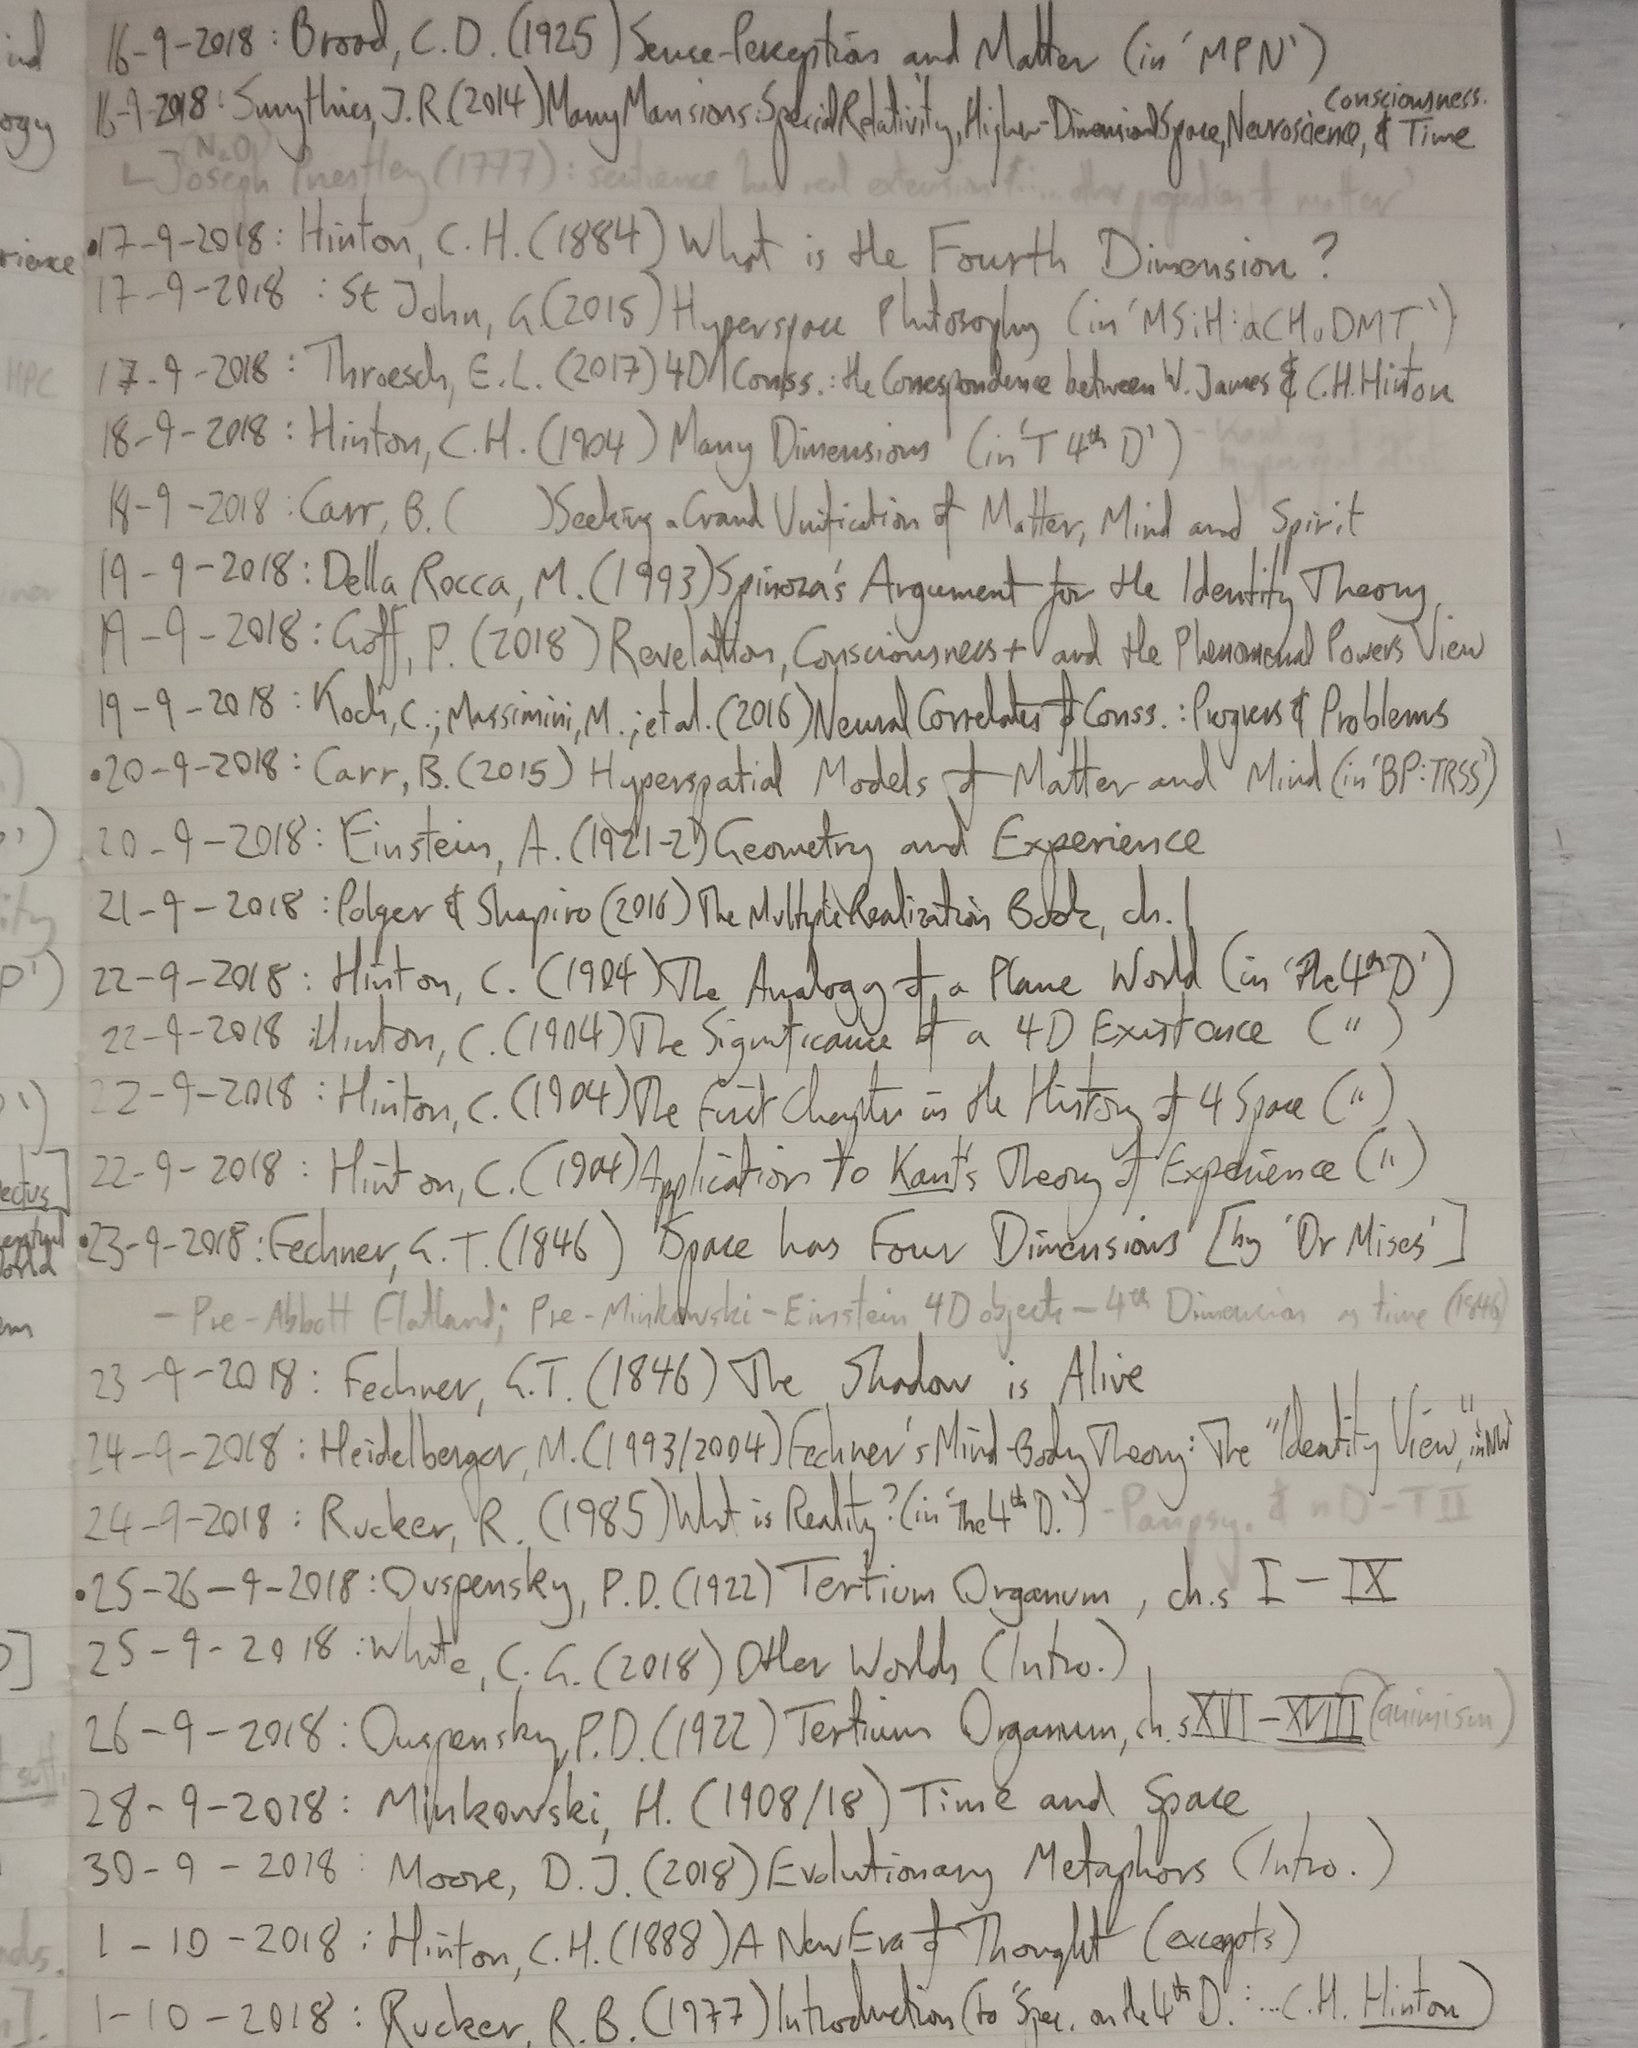 16-9-2018 : Broad, C.D. (1925) Sense-Perception and Matter (in 'MPN')
16-9-2018 : Smythies, J.R. (2014) Many Mansions: Special Relativity, Higher-Dimensional Space, Neuroscience, Consciousness. & Time
(N₂O)
↳ Joseph Priestley (1777) : sentience has real extension &... other properties of matter'
•17-9-2018 : Hinton, C.H. (1884) What is the Fourth Dimension?
17-9-2018 : St John, G. (2015) Hyperspace Philosophy (in 'MSiH: aCHoDMT')
17-9-2018 : Throesch, E.L. (2017) 4D Conss. : the Correspondence between W. James & C.H. Hinton
18-9-2018 : Hinton, C.H. (1904) Many Dimensions (in 'T 4th D')
18-9-2018 : Carr, B. ( ) Seeking a Grand Unification of Matter, Mind and Spirit
19-9-2018 : Della Rocca, M. (1993) Spinoza's Argument for the Identity Theory
19-9-2018 : Goff, P. (2018) Revelation, Consciousness+ and the Phenomenal Powers View
19-9-2018 : Koch, C.; Massimini, M.; et al. (2016) Neural Correlates of Conss. : Progress & Problems
•20-9-2018 : Carr, B. (2015) Hyperspatial Models of Matter and Mind (in 'BP:TRSS')
20-9-2018 : Einstein, A. (1921-2) Geometry and Experience
21-9-2018 : Polger & Shapiro (2016) The Multiple Realization Book, ch. 1
22-9-2018 : Hinton, C. (1904) The Analogy of a Plane World (in 'the 4th D')
22-9-2018 : Hinton, C. (1904) The Significance of a 4D Existence (")
22-9-2018 : Hinton, C. (1904) The First Chapter in the History of 4 Space (")
22-9-2018 : Hinton, C. (1904) Application to Kant's Theory of Experience (")
•23-9-2018 : Fechner, G.T. (1846) Space has Four Dimensions [by 'Dr Mises']
- Pre-Abbott Flatland; Pre-Minkowski-Einstein 4D objects - 4th Dimension as time (1846)
23-9-2018 : Fechner, G.T. (1846) The Shadow is Alive
24-9-2018 : Heidelberger, M. (1993/2004) Fechner's Mind-Body Theory: The "Identity View",
24-9-2018 : Rucker, R. (1985) What is Reality? (in 'the 4th D.') - Panpsy. & nD - TII
•25-26-9-2018 : Ouspensky, P.D. (1922) Tertium Organum, ch.s I - IX
25-9-2018 : White, C.G. (2018) Other Worlds (Intro.)
26-9-2018 : Ouspensky, P.D. (1922) Tertium Organum, ch.s XVI - XVIII (animism)
28-9-2018 : Minkowski, H. (1908/18) Time and Space
30-9-2018 : Moore, D.J. (2018) Evolutionary Metaphors (Intro.)
1-10-2018 : Hinton, C.H. (1888) A New Era of Thought (excerpts)
1-10-2018 : Rucker, R.B. (1977) Introduction (to 'Spec. on the 4th D. : ...C.H. Hinton)